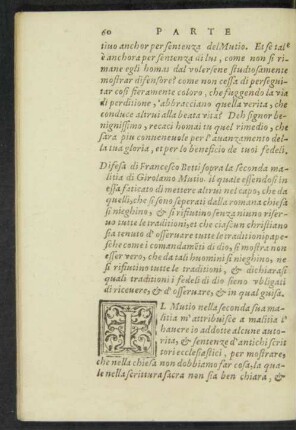 60 PARTE
tino anchor per sentenza del Mutio. Et se tal
è anchora per sentenza di lui, come non si ri-
mane egli homai dal volersene studiosamente
mostrar difensore? come non cessa di persegui-
tar così fieramente coloro, che fuggendo la via
di perditione, abbracciano quella verità, che
conduce altrui alla beata vita? Deh signor be-
nignissimo, recaci homai tu quel rimedio, che
sarà piu conueneuole per l'auanzamento del-
la tua gloria, et per lo beneficio de tuoi fedeli.
Difesa di Francesco Betti sopra la seconda ma-
litia di Girolamo Mutio. il quale essendosi in
essa faticato di mettere altrui nel capo, che da
quelli, che si sono seperati dalla romana chiesa
si nieghino, & si rifiutino senza niuno riser-
uo tutte le traditioni, et che ciascun christiano
sia tenuto d'osseruare tutte le traditioni pape-
sche come i comandamēti di dio, si mostra non
esser vero, che da tali huomini si nieghino, ne
si rifiutino tutte le traditioni, & dichiarasi
quali traditioni i fedeli di dio sieno vbligati
di riceuere, & d'osseruare, & in qual guisa.
IL Mutio nella seconda sua ma-
litia m'attribuisce a malitia l'
hauere io addotte alcune auto-
rità, & sentenze d'antichi scrit
tori ecclesiastici, per mostrare,
che nella chiesa non dobbiamo far cosa, la qua-
le nella scrittura sacra non sia ben chiara, &